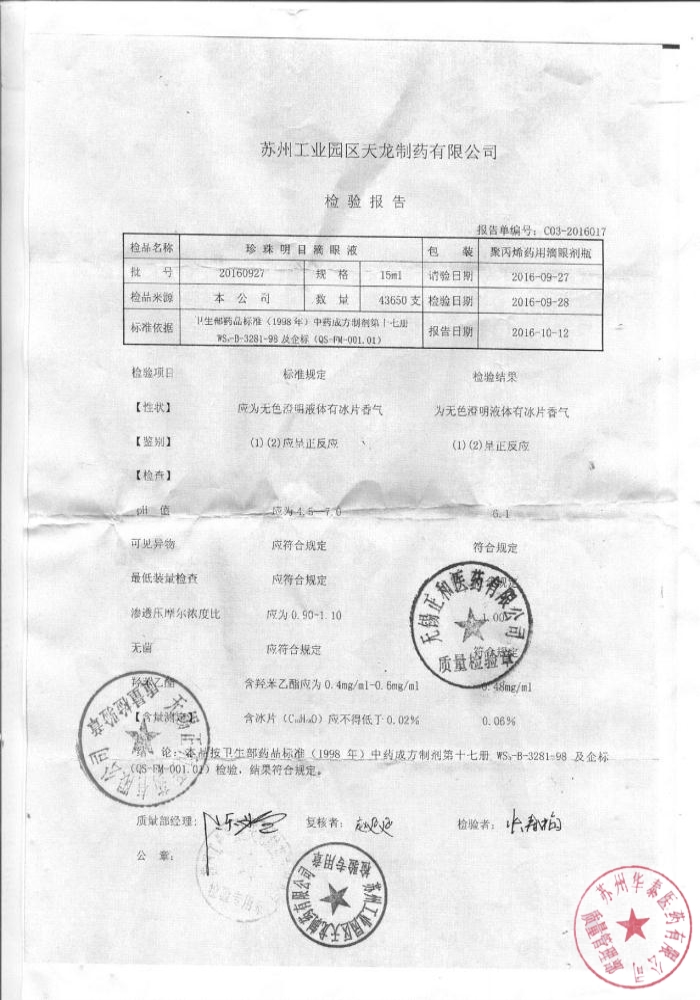 苏州工业园区天龙制药有限公司
检验报告
报告单编号：C03-2016017
检品名称 珍珠明目滴眼液 包装 聚丙烯药用滴眼剂瓶
批号 20160927 规格 15ml 请验日期 2016-09-27
检品来源 本公司 数量 43650支 检验日期 2016-09-28
标准依据 卫生部药品标准（1998年）中药成方制剂第十七册 WS₃-B-3281-98及企标（QS-FM-001.01） 报告日期 2016-10-12
检验项目 标准规定 检验结果
【性状】 应为无色澄明液体有冰片香气 为无色澄明液体有冰片香气
【鉴别】 (1)(2)应呈正反应 (1)(2)呈正反应
【检查】
pH 值 应为4.5—7.0 6.1
可见异物 应符合规定 符合规定
最低装量检查 应符合规定
渗透压摩尔浓度比 应为0.90-1.10 1.00
无菌 应符合规定 符合规定
羟苯乙酯 含羟苯乙酯应为0.4mg/ml-0.6mg/ml 0.48mg/ml
【含量测定】 含冰片（C₁₀H₁₈O）应不得低于0.02% 0.06%
结论：本品按卫生部药品标准（1998年）中药成方制剂第十七册 WS₃-B-3281-98 及企标
（QS-FM-001.01）检验，结果符合规定。
质量部经理： 复核者： 检验者：
公章：
无锡正和医药有限公司
质量检验章
无锡正和医药有限公司
质量检验章
苏州工业园区天龙制药有限公司
检验专用章
苏州华泰医药有限公司
质量管理部